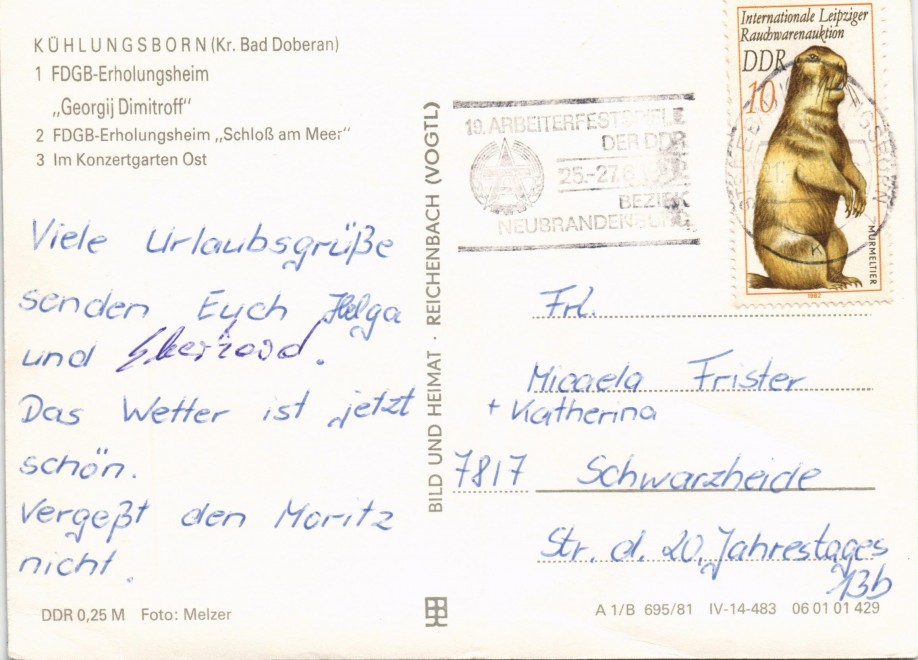 KÜHLUNGSBORN (Kr. Bad Doberan)
1 FDGB-Erholungsheim
„Georgij Dimitroff“
2 FDGB-Erholungsheim „Schloß am Meer“
3 Im Konzertgarten Ost
Viele Urlaubsgrüße
senden Euch Helga
und Eberhard.
Das Wetter ist jetzt
schön.
Vergeßt den Moritz
nicht.
DDR 0,25 M Foto: Melzer
BILD UND HEIMAT · REICHENBACH (VOGTL)
19. ARBEITERFESTSPIELE
DER DDR
25.-27.6.
BEZIRK
NEUBRANDENBURG
Internationale Leipziger
Rauchwarenauktion
DDR
10
MURMELTIER
1982
Frl.
Micaela Frister
+ Katherina
7817 Schwarzheide
Str. d. 20. Jahrestages
13b
A 1/B 695/81 IV-14-483 06 01 01 429